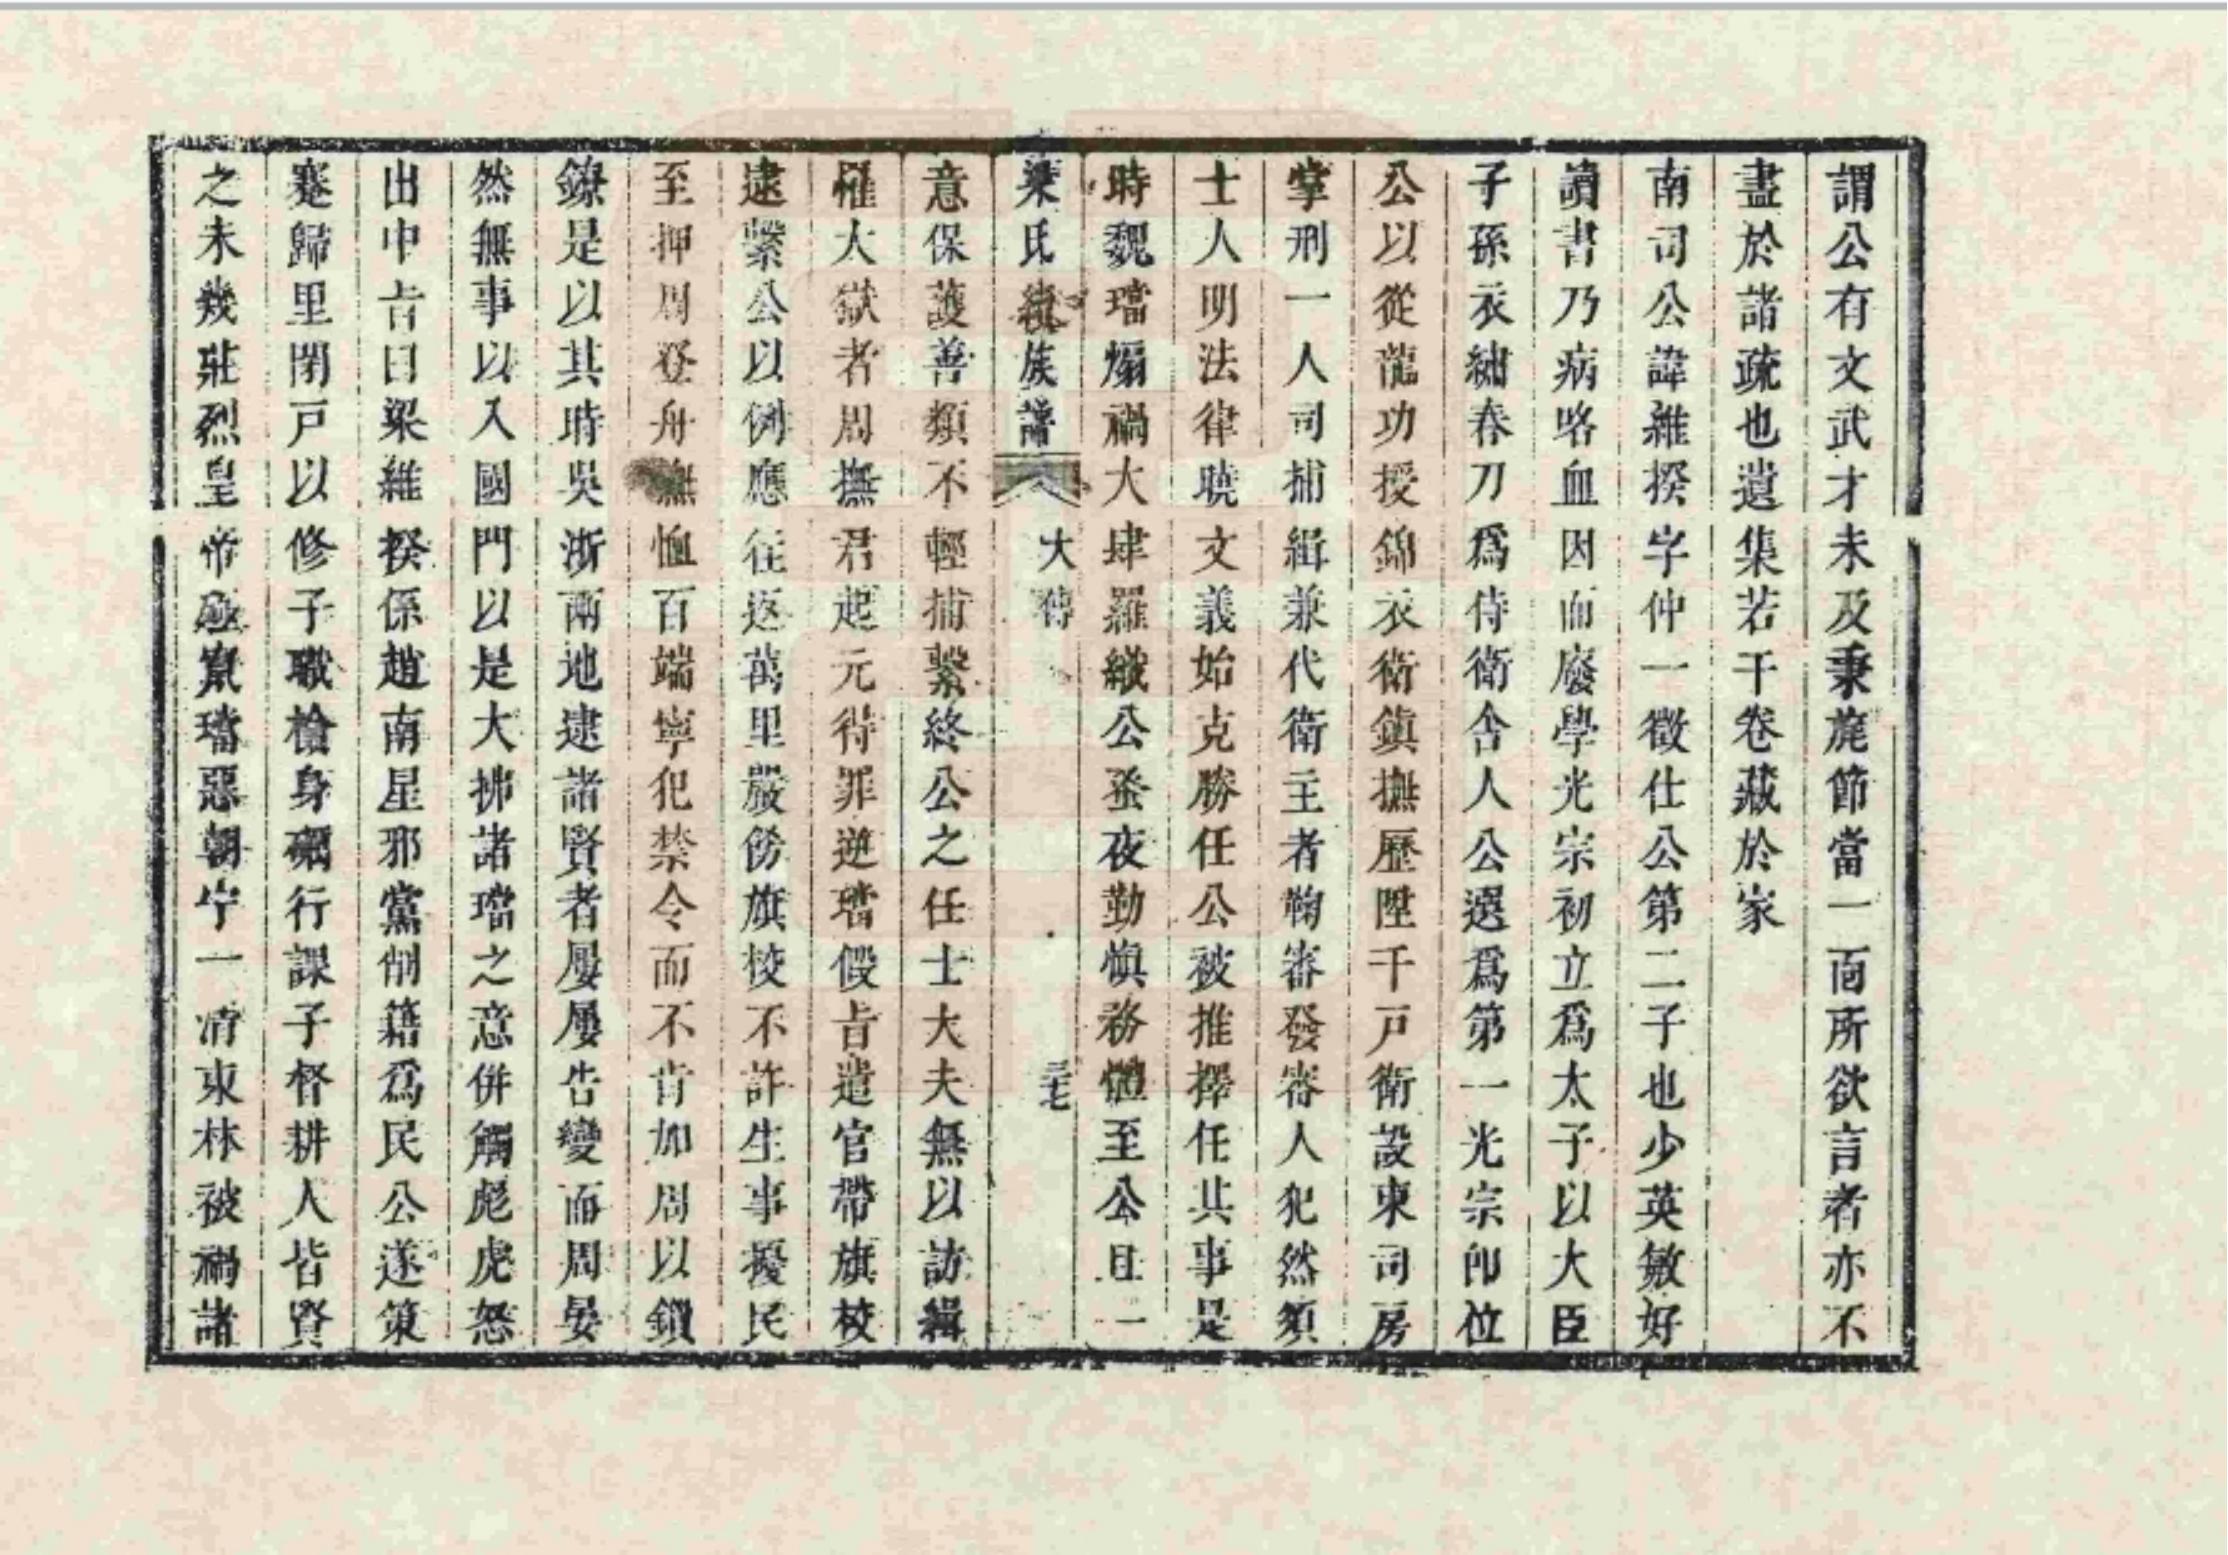 謂公有文武才未及秉旄節當一面所欲言者亦不
盡於諸疏也遺集若干卷藏於家
南司公諱維揆字仲一徵仕公第二子也少英敏好
讀書乃病咯血因而廢學光宗初立爲太子以大臣
子孫衣繡春刀爲侍衛舍人公選爲第一光宗卽位
公以從龍功授錦衣衛鎮撫歷陞千戸衛設東司房
掌刑一人司捕緝兼代衛主者鞫審發審人犯然須
士人明法律曉文義始克勝任公被推擇任其事是
時魏璫煽禍大肆羅織公蚤夜勤愼務體至公且一
梁氏續族譜 大傳 三七
意保護善類不輕捕繫終公之任士大夫無以訪緝
罹大獄者周撫君起元待罪逆璫假㫖遣官帶旗校
逮繫公以例應往返萬里嚴飭旗校不許生事擾民
至押周登舟撫恤百端寧犯禁令而不肯加周以鎖
鐐是以其時吳浙兩地逮諸賢者屢屢告變而周晏
然無事以入國門以是大拂諸璫之意併觸彪虎怒
出中㫖曰梁維揆係趙南星邪黨削籍爲民公遂策
蹇歸里閉戸以修子職檢身礪行課子督耕人皆賢
之未幾莊烈皇帝亟竄璫惡朝宁一清東林被禍諸